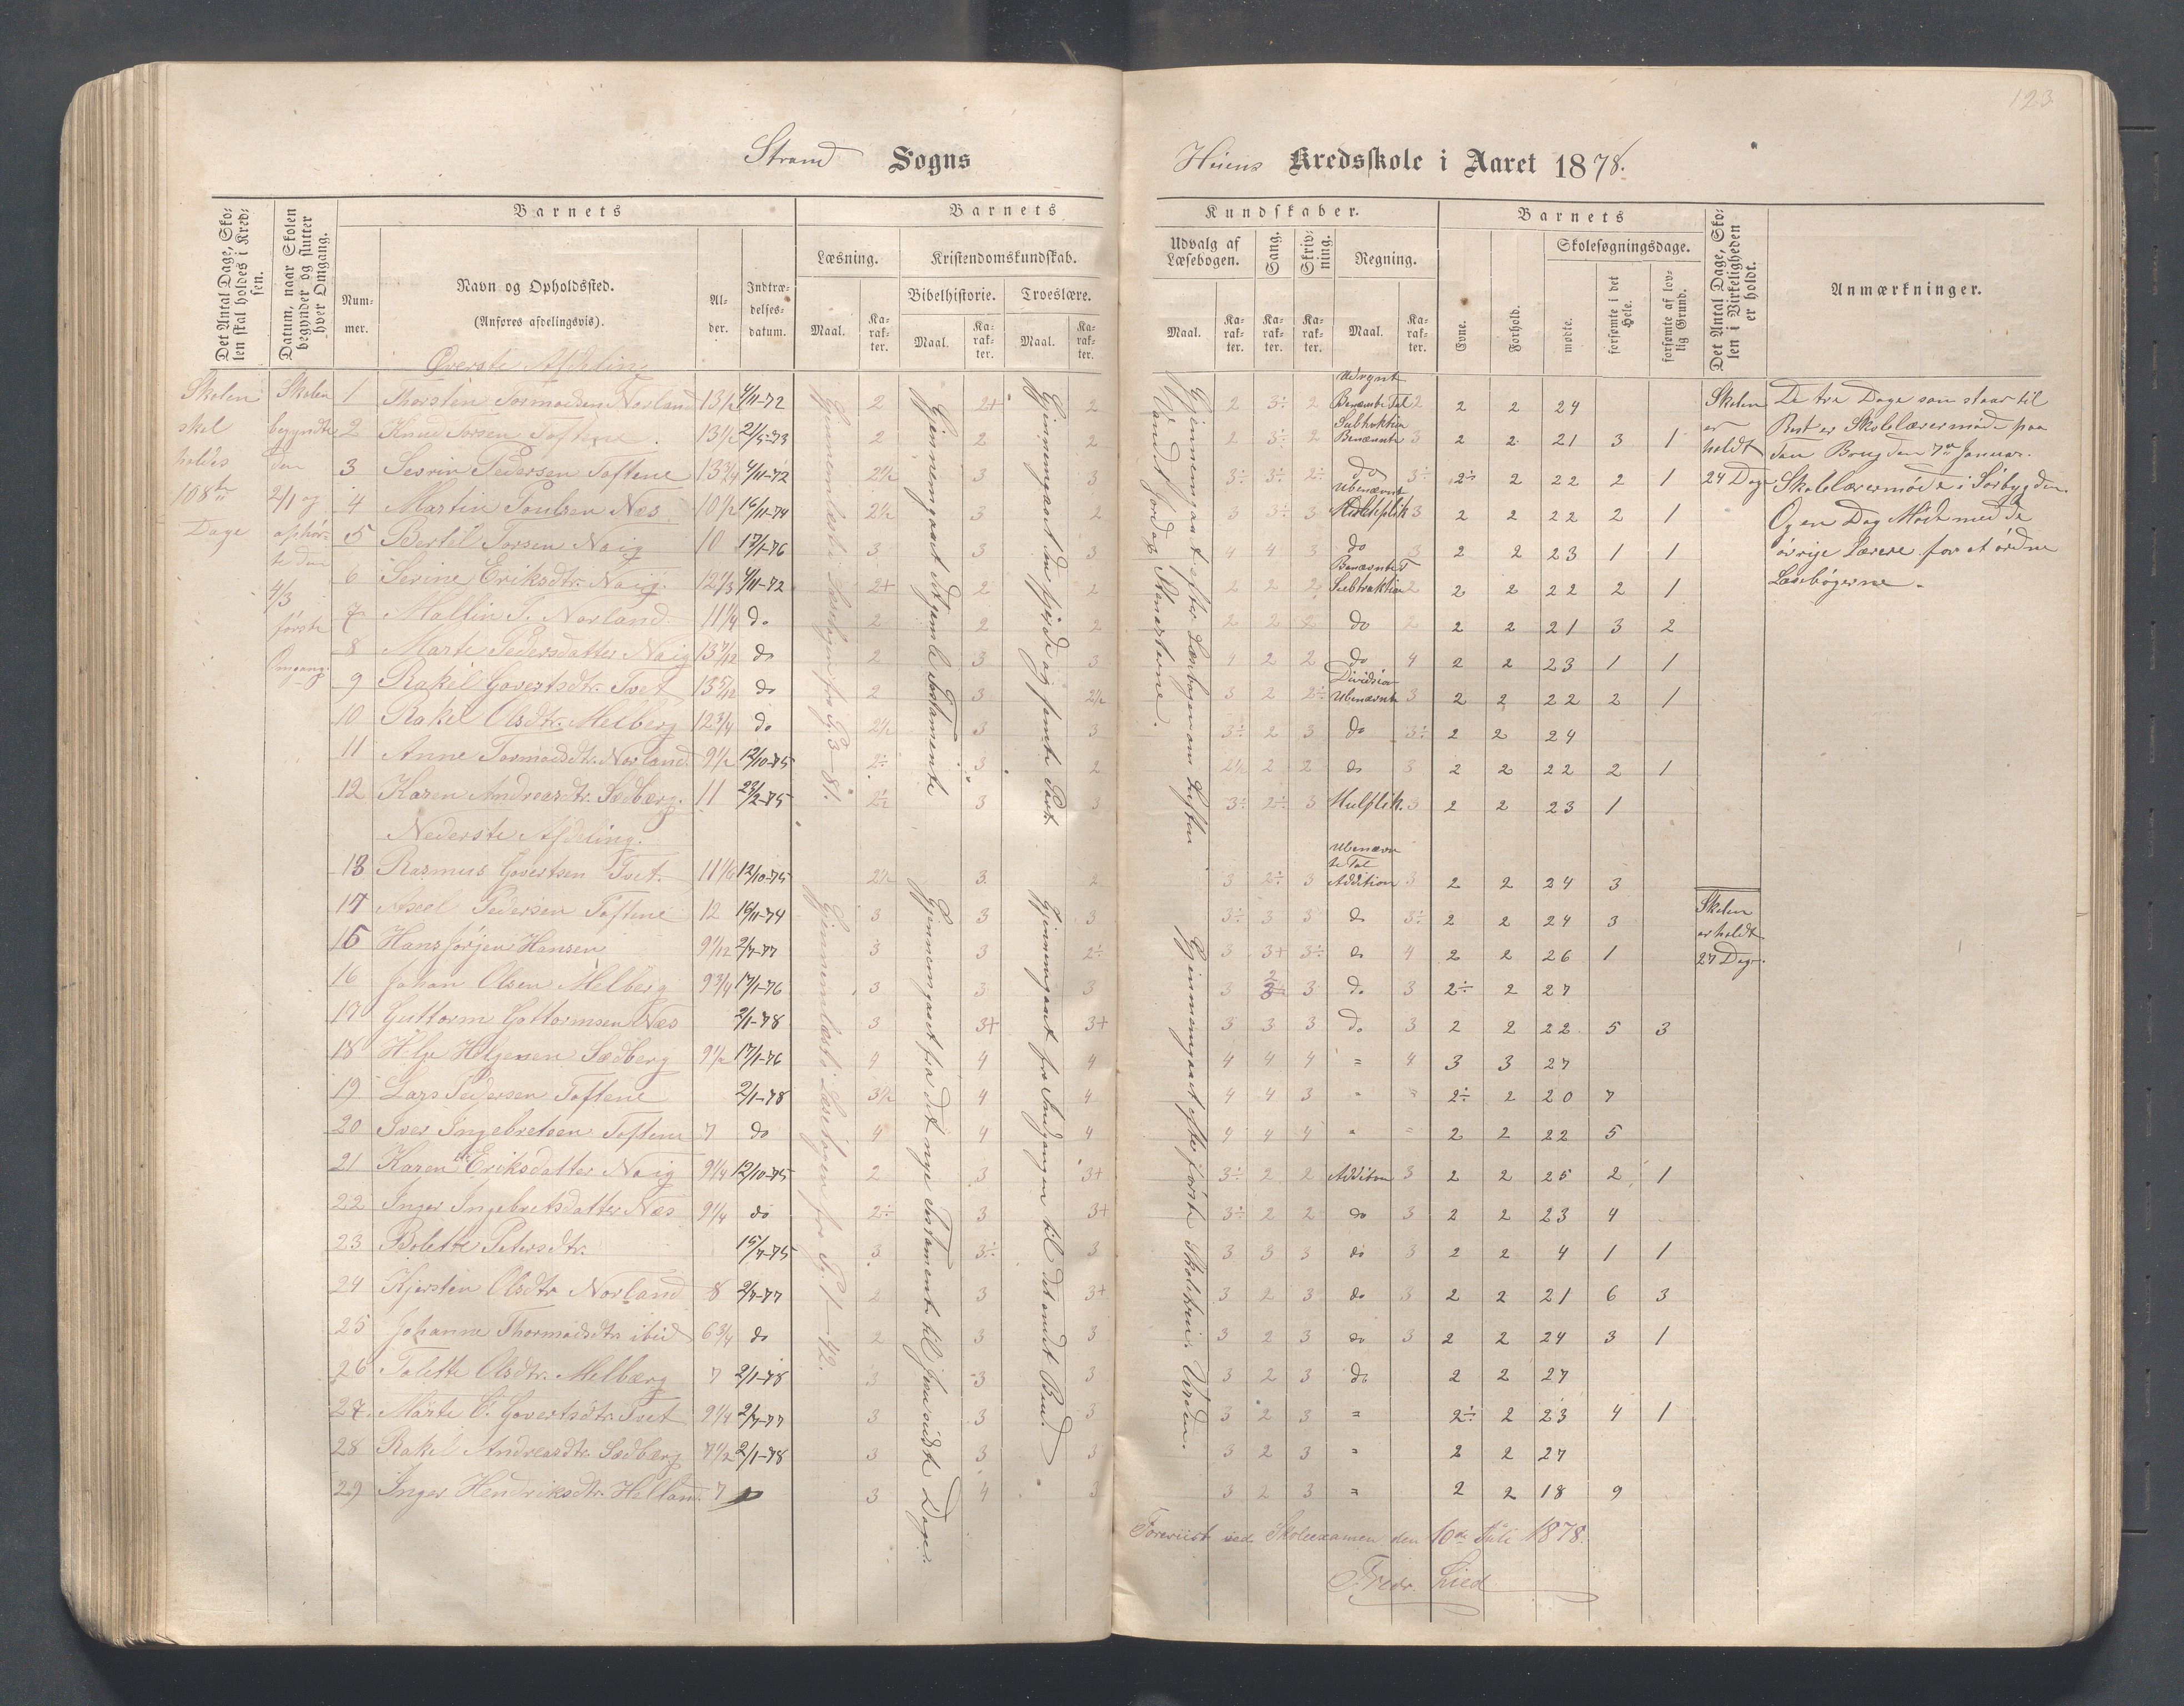 123
Strand Sogns
Kredsskole i Aaret 1878.
Det Antal Dage, Sko-
len skal holdes i Kred-
sen.
Datum, naar Skolen
begynder og slutter
hver Omgang.
Barnets
Num-
mer.
Navn og Opholdssted.
(Anføres afdelingsvis).
Al-
der.
Indtræ-
delses-
datum.
Barnets
Læsning.
Kristendomskundskab.
Bibelhistorie. Troeslære.
Maal. Ka-
rak-
ter.
Maal. Ka-
rak-
ter.
Maal. Ka-
rak-
ter.
Kundskaber.
Udvalg af
Læsebogen.
Sang.
Skriv-
ning.
Regning.
Maal. Ka-
rak-
ter.
Ka-
rak-
ter.
Ka-
rak-
ter.
Maal. Ka-
rak-
ter.
Barnets
Evne.
Forhold.
Skolesøgningsdage.
mødte.
forsømte i det
Hele.
forsømte af lov-
lig Grund.
Det Antal Dage, Sko-
len i Virkeligheden
er holdt.
Anmærkninger.
Skolen
skal
holdes
108
Dage
Skolen
begyndte
den
2/1 og
ophør-
te den
4/3
første
Omgang
Øverste Afdeling
1 Thorsten Tormodsen Norland 13½ 4/11-72 2 2+ 2 2 3÷ 2 Benævnte Tal 2 2 2 24
2 Knud Torsen Toftene 13½ 21/5-73 2 2 2 2 3÷ 2 Subtraktion Benævnte 3 2 2 21 3 1
3 Sevrin Pedersen Toftene 13¾ 4/11-72 2½ 3 3 3÷ 3÷ 2÷ do 3÷ 2÷ 2 22 2 1
4 Martin Poulsen Næs 10½ 16/11-74 2½ 3 2 3 3÷ 3 Ubenævnt Multiplik 3 2 2 22 2 1
5 Bertel Torsen Naig 10 17/1-76 3 3 3 4 4 3 do 3 2 2 23 1 1
6 Serine Eriksdtr. Naig 12⅓ 4/11-72 2+ 2 2 2 2 2 Benævnte T Subtraktion 2 2 2 22 2 1
7 Mallin T. Norland 11¼ do 2 2 2 2 2 2 do 2 2 2 21 3 2
8 Marte Pedersdatter Naig 13 7/12 do 2 3 3 4 2 2 do 4 2 2 23 1 1
9 Rakel Govertsdtr. Tvet 13 5/12 do 2 3 2½ 3 2 2÷ Division Ubenævnte 3 2 2 22 2 1
10 Rakel Olsdtr. Melberg 12¾ do 2½ 3 3 3÷ 2 3 do 3÷ 2 2 24
11 Anne Tormodsdtr. Norland 9½ 12/10-75 2÷ 3 2 2½ 2 2 do 3 2 2 22 2 1
12 Karen Andreasdtr. Sædberg 11 23/2-75 2÷ 3 3 3÷ 2÷ 3 3 2 2 23 1
Nederste Afdeling.
13 Rasmus Govertsen Tvet 11⅙ 12/10-75 2½ 3 2 3 2÷ 3 Ubenævn te Tal Addition 3 2 2 24 3
14 Pedersen Toftene 12 16/11-74 3 3 3 3÷ 3 3 do 3÷ 2 2 24 3
15 Hans Jørjen Hansen 9 1/12 2/7-77 3 3 2÷ 3 3+ 3÷ do 4 2 2 26 1
16 Johan Olsen Melberg 9¾ 17/1-76 3 3 3 3 2 3 do 3 2÷ 2 27
17 Guttorm Gottormsen Næs 2/1-78 3 3+ 3+ 3 3 3 do 3 2 2 22 5 3
18 Helje Heljesen Sædberg 9½ 17/1-76 4 4 4 4 4 4 " 4 3 3 27
19 Lars Pedersen Toftene 2/1-78 3½ 4 4 4 4 3 " " 2÷ 2 20 7
20 Iver Ingebretsen Toftene 7 do 4 4 4 4 4 4 " " 2 2 22 5
21 Karen Eriksdatter Naig 9¼ 12/10-75 2 3 3+ 3÷ 2 2 Addition 3 2 2 25 2 1
22 Inger Ingebretsdatter Næs 9¼ do 2÷ 3 3+ 3÷ 2 2 do 3 2 2 23 4
23 Bolette Petersdtr. 15/7-75 3 3÷ 3 3 3 3 do 3 2 2 4 1 1
24 Kjersten Olsdtr Norland 8 2/7-77 2 3 3+ 3 2 3 do 3 2 2 21 6 3
25 Johanne Thormodsdtr ibid 6¾ do 2 3 3 3 2 3 do 3 2 2 24 3 1
26 Tolette Olsdtr. Melbærg 7 2/1-78 3 3 3 3 2 3 do 2 2 27
27 Marte C. Govertsdtr. Tvet 9¼ 2/7-77 3 3 3 3 2 3 " 2÷ 2 23 4 1
28 Rakel Andreasdtr. Sædberg 7½ 2/1-78 3 3 3 3 2 3 " 2 2 27
29 Inger Hendriksdtr. 7 3 4 3 3 2 3 " 2 2 18 9
Gjennemlæst Læsebogen fra Pg. 3—81.
Gjennemgaaet det gamle Testamente
Gjennemgaaet den fjerde og femte Part
Gjennemgaaet efter Læsebogen om Luften
Vandet Jordog Stenarterne.
Gjennemlæst Læsebogen fra Pg. 1—42.
Gjennemgaaet fra det nye Testamente til Dage.
Gjennemgaaet fra Indgangen til det andet Bud.
Gjennemgaaet efter første Skoletrin: Verden.
Skolen
er
holdt
24 Dage
Skolen
er holdt
27 Dage.
De tre Dage som staar til
Rest er Skolelærermøde paa
Tau Brug den 7de Januar.
Skolelærermøde i Sørbygden.
Og en Dag Møde med de
øvrige Lærere for at ordne
Læsebøgerne.
Foreviist ved Skoleexamen den 10de Juli 1878.
Fredr. Lied